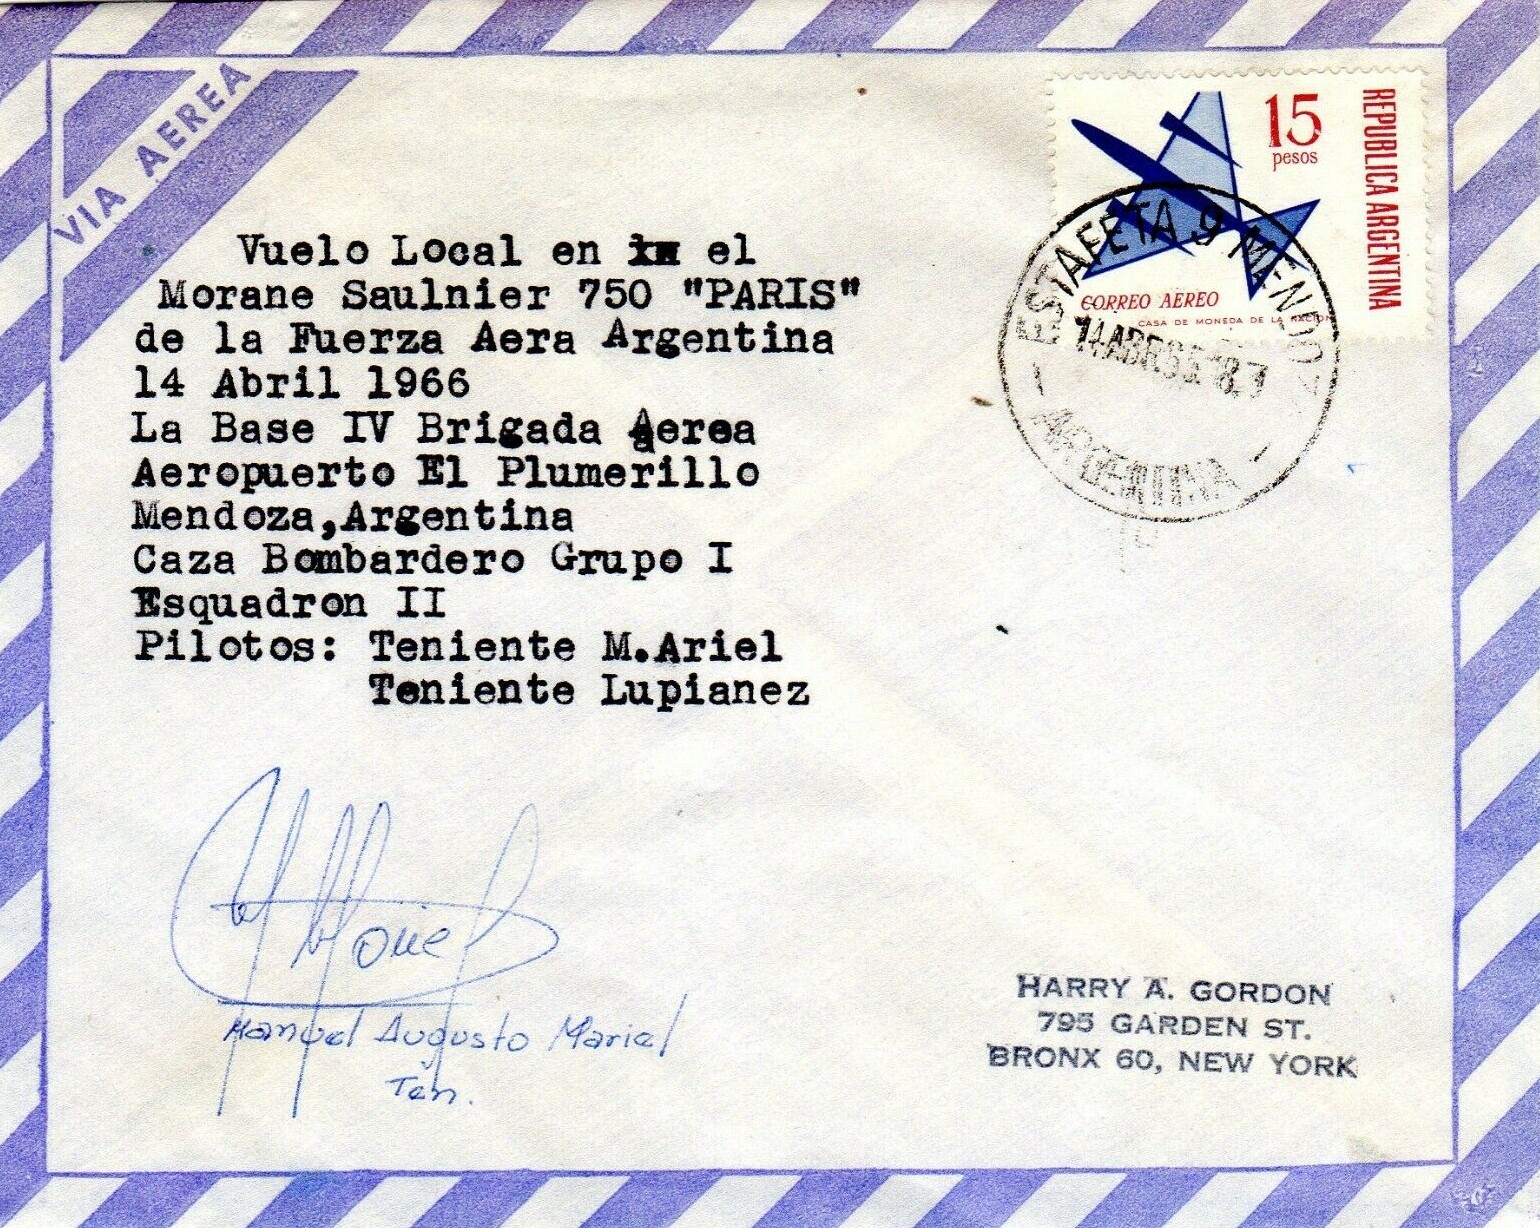 VIA AEREA
15
pesos
REPUBLICA ARGENTINA
CORREO AEREO
CASA DE MONEDA DE LA NACION
ESTAFETA 9 MENDOZA
14 ABR
ARGENTINA
Vuelo Local en el
Morane Saulnier 750 "PARIS"
de la Fuerza Aera Argentina
14 Abril 1966
La Base IV Brigada Aerea
Aeropuerto El Plumerillo
Mendoza,Argentina
Caza Bombardero Grupo I
Esquadron II
Pilotos: Teniente M.Ariel
Teniente Lupianez
Manuel Augusto Mariel
Ten.
HARRY A. GORDON
795 GARDEN ST.
BRONX 60, NEW YORK